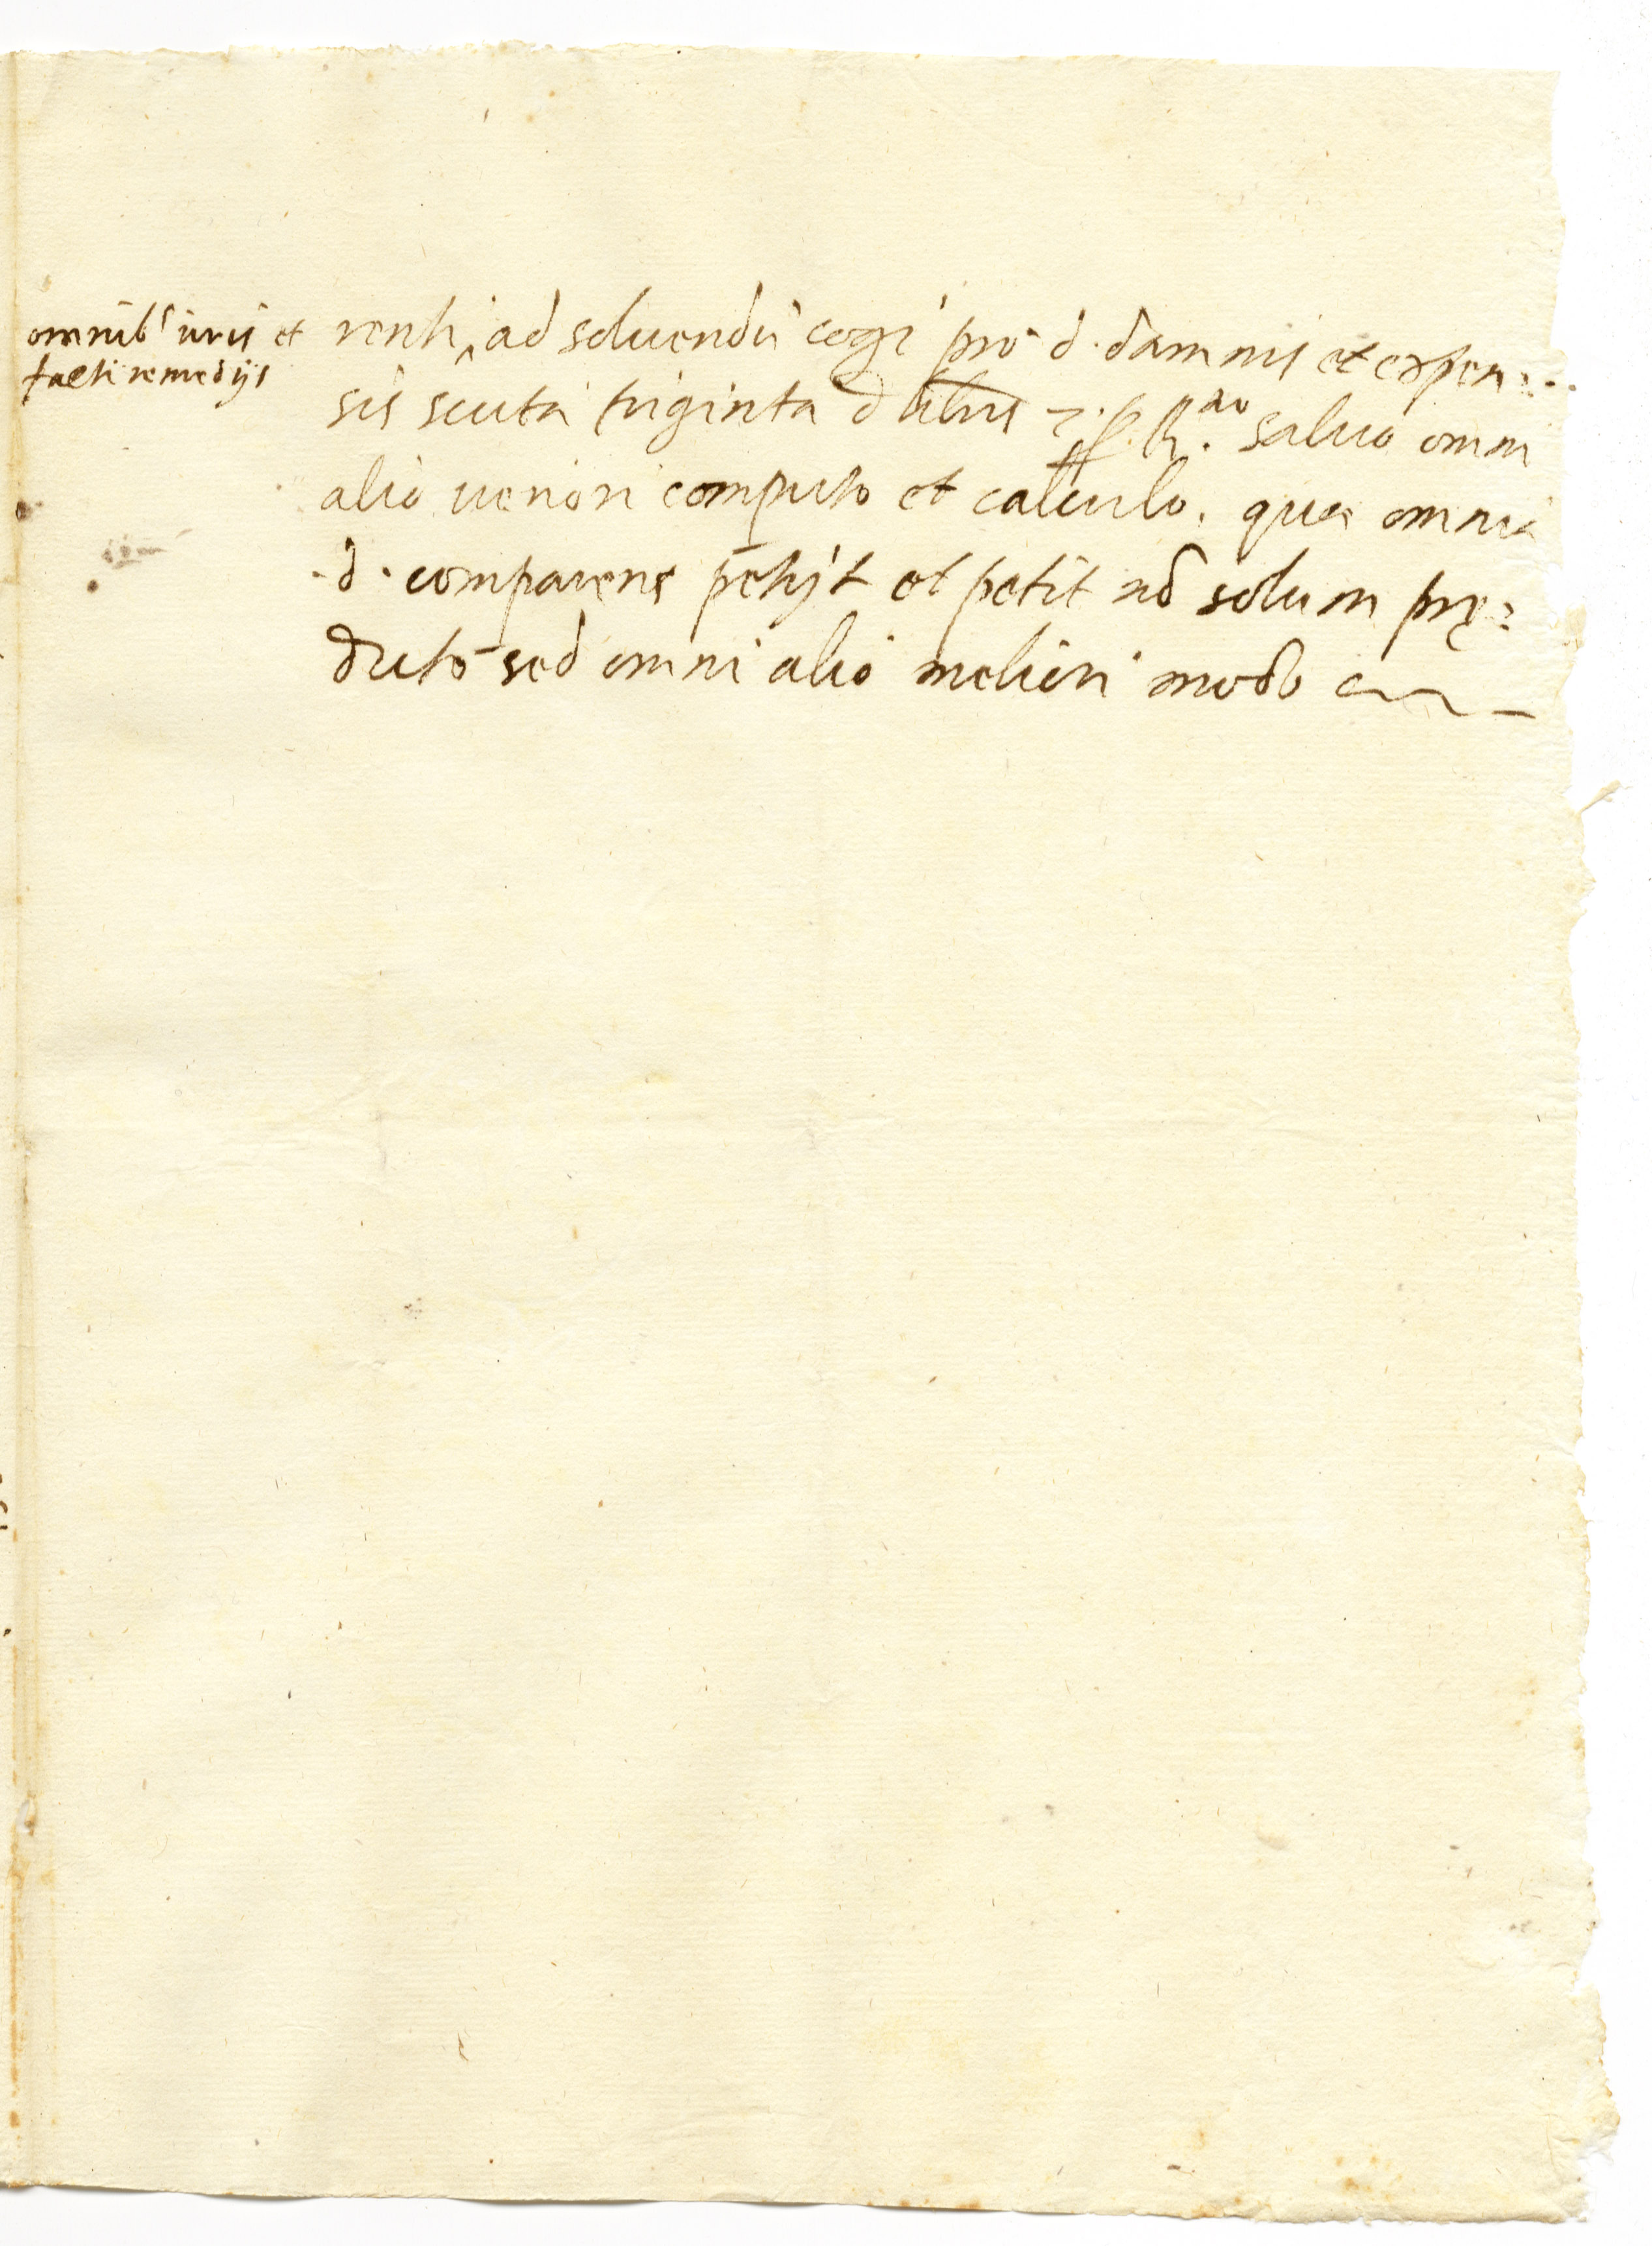 omnib' iuris et
facti remedijs
renti, ad soluendũ cogi pro d. damnis et expen:
sis scuta triginta salua omni
alio ueriori computo et calculo. quae omnia
.d. comparens petijt et petit nõ solum prę:
dicto sed omni alio meliori modo